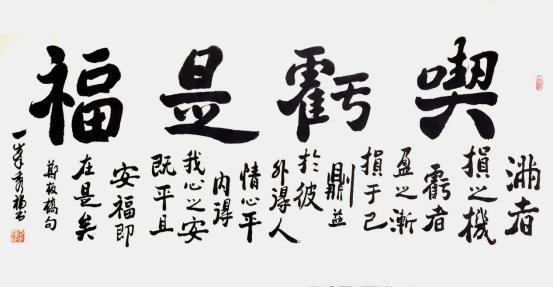 喫虧是福
滿者
損之機
虧者
盈之漸
損于己
則益
於彼
外得人
情之平
內得
我心之安
既平且
安福即
在是矣
鄭板橋句
一峯